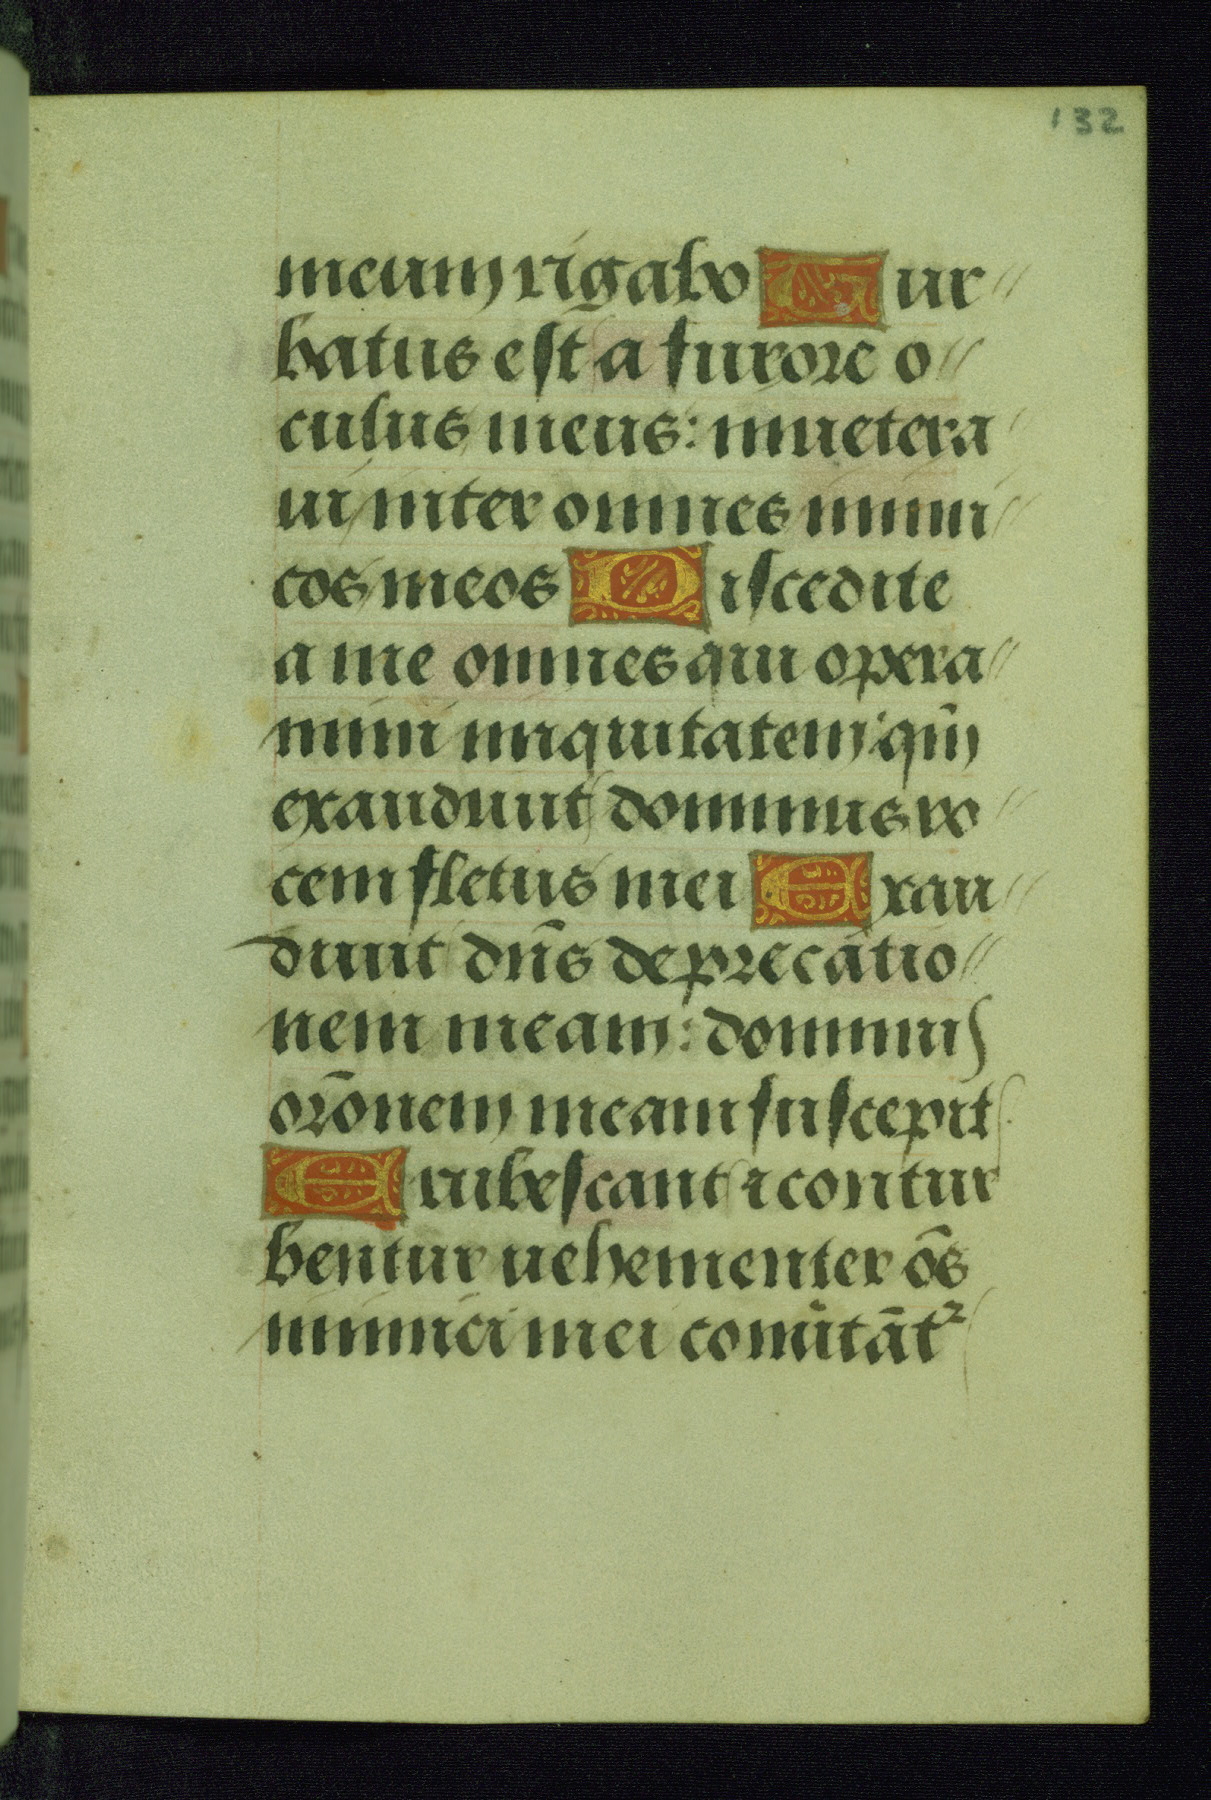 132
meum rigabo Tur//
batus est a furore o//
culus meus: inuetera
ui inter omnes inimi//
cos meos Discedite
a me omnes qui opera//
mini iniquitatem: qm̄
exaudiuit dominus vo
cem fletus mei Exau//
diuit dn̄s deprecatio//
nem meam: dominus
orōnem meam suscepit.
Erubescant ⁊ contur
bentur uehementer ōs
inimici mei conūtāt²